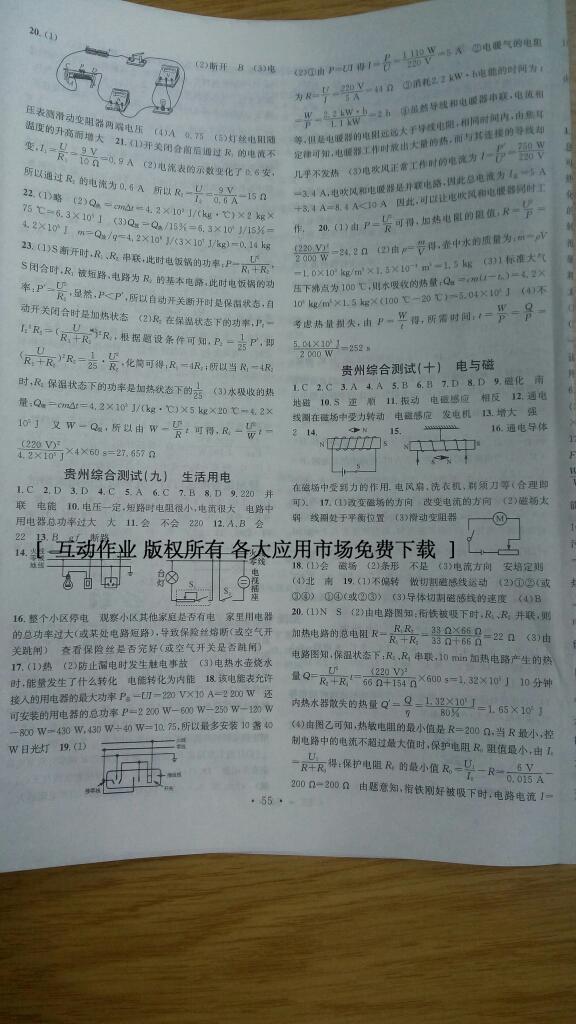 20.(1)
(2)断开 B (3)电
压表测滑动变阻器两端电压 (4)A 0.75 (5)灯丝电阻随
温度的升高而增大 21.(1)开关闭合前后通过R₁的电流不
变,I₁=U/R₁=9 V/10 Ω=0.9 A (2)电流表的示数变化了0.6安,
所以通过R₂的电流为0.6 A 所以R₂=U/I₂=9 V/0.6 A=15 Ω
22.(1)略 (2)Q吸=cmΔt=4.2×10³ J/(kg·℃)×2 kg×
75 ℃=6.3×10⁵ J (3)Q放=Q吸/15%=6.3×10⁵ J/15%=
4.2×10⁶ J m=Q放/q=4.2×10⁶ J/(3×10⁷ J/kg)=0.14 kg
23.(1)S断开时,R₁、R₂串联,此时电饭锅的功率:P=U²/(R₁+R₂),
S闭合时,R₁被短路,电路为R₂的基本电路,此时电饭锅的功
率:P′=U²/R₂,显然,P<P′,所以自动开关断开时是保温状态,自
动开关闭合时是加热状态 (2)R₂在保温状态下的功率,P₂=
I₂²R₂=(U/(R₁+R₂))²R₂,根据题设条件可知,P₂=1/25 P′,即
(U/(R₁+R₂))²R₂=1/25·U²/R₂,化简可得:R₁=4R₂;所以当R₁=4R₂
时,R₂保温状态下的功率是加热状态下的1/25 (3)水吸收的热
量:Q吸=cmΔt=4.2×10³ J/(kg·℃)×5 kg×20 ℃=4.2×
10⁵ J 又W=Q吸,所以由W=U²/R t可得,R₂=U²/W t=
(220 V)²/4.2×10⁵ J×4×60 s=27.657 Ω
贵州综合测试(九) 生活用电
1.C 2.D 3.D 4.C 5.A 6.C 7.B 8.D 9.220 并
联 电能 10.电压一定,短路时电阻很小,电流很大 电路中
用电器总功率过大 大 11.会 不会 220 12.A、B 会
22 13.B gf 断路
14.
火线
零线
地线
台灯
S₁
S₂
零线
电视插座
16.整个小区停电 观察小区其他家庭是否有电 家里用电器
的总功率过大(或某处电路短路),导致保险丝熔断(或空气开
关跳闸) 查看保险丝是否完好(或空气开关是否跳闸)
17.(1)热 (2)防止漏电时发生触电事故 (3)电热水壶烧水
时,能量发生了什么转化 电能转化为内能 18.该电能表允许
接入的用电器的最大功率P总=UI=220 V×10 A=2 200 W 还
可安装的用电器的总功率P=2 200 W-600 W-250 W-120 W
-800 W=430 W,430 W÷40 W=10.75,所以最多安装10盏40
W日光灯 19.(1)
火线
零线
接零线
接线
开关
(2)①由P=UI得I=P/U=1 110 W/220 V=5 A ②电暖气的电阻
为R=U/I=220 V/5 A=44 Ω ③消耗2.2 kW·h电能的时间为:t
=W/P=2.2 kW·h/1.1 kW=2 h ④虽然导线和电暖器串联,电流相
等,但是电暖器的电阻远远大于导线电阻,相同时间内,由焦耳
定律可知,电暖器工作时放出大量的热,而与其连接的导线却
几乎不发热 (3)电吹风正常工作时的电流为I=P′/U=750 W/220 V
=3.4 A,电吹风和电暖器是并联电路,因此总电流为I总=5 A
+3.4 A=8.4 A<10 A 因此,可以让电吹风和电暖器同时工
作. 20.(1)由P=U²/R可得,加热电阻的阻值,R=U²/P=
(220 V)²/2 000 W=24.2 Ω (2)由ρ=m/V得,壶中水的质量为:m=ρV
=1.0×10³ kg/m³×1.5×10⁻³ m³=1.5 kg (3)1标准大气
压下沸点为100 ℃,则水吸收的热量:Q吸=cm(t-t₀)=4.2×
10³ kg/m³×1.5 kg×(100 ℃-20 ℃)=5.04×10⁵ J (4)不
考虑热量损失,由P=W/t得,所需时间:t=W/P=Q/P=
5.04×10⁵ J/2 000 W=252 s
贵州综合测试(十) 电与磁
1.C 2.C 3.A 4.A 5.B 6.B 7.D 8.D 9.磁化 南
地磁 10.S 逆 顺 11.振动 电磁感应 相反 12.通电
线圈在磁场中受力转动 电磁感应 发电机 13.增大 强
2 14.
N
S
S
15.
N
16.通电导体
在磁场中受到力的作用. 电风扇,洗衣机,剃须刀等(合理即
可). 17.(1)改变磁场的方向 改变电流的方向 (2)磁场太
弱 线圈处于平衡位置 (3)滑动变阻器
M
18.(1)会 磁场 (2)条形 不是 (3)电流方向 安培定则
(4)北 南 19.(1)不偏转 做切割磁感线运动 (2)①②(或
③④) ①④(或②③) (3)导体切割磁感线的速度 (4)B
20.(1)N S (2)由电路图知:衔铁被吸下时,R₁、R₂并联,则
加热电路的总电阻R=R₁R₂/(R₁+R₂)=33 Ω×66 Ω/(33 Ω+66 Ω)=22 Ω (3)由
电路图知,保温状态下:R₂、R₃串联,10 min加热电路产生的热
量Q=U²/(R₂+R₃)t=(220 V)²/(66 Ω+154 Ω)×600 s=1.32×10⁵ J 10分钟
内热水器散失的热量Q′=Q/η=1.32×10⁵ J/80%=1.65×10⁵ J
(4)由图乙可知,热敏电阻的最小值是R=200 Ω,当R最小,控
制电路中的电流不超过最大值时,保护电阻R₀阻值最小,由I₀
=U₁/(R+R₀)得:保护电阻R₀的最小值R₀=U₁/I₀-R=6 V/0.015 A-
200 Ω=200 Ω 由题意知,衔铁刚好被吸下时,电路电流I=
·55·
[ 互动作业 版权所有 各大应用市场免费下载 ]